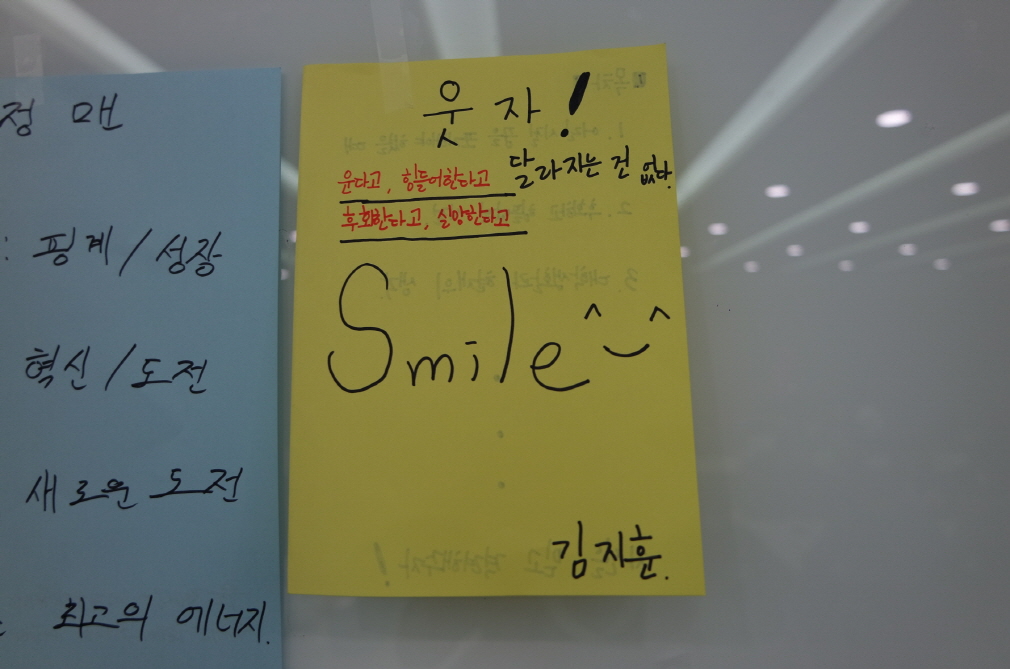 정 맨
: 핑계 / 성장
혁신 / 도전
새로운 도전
최고의 에너지.
웃자!
운다고, 힘들어한다고 달라지는 건 없다.
후회한다고, 실망한다고
Smile ^‿^
김지훈.